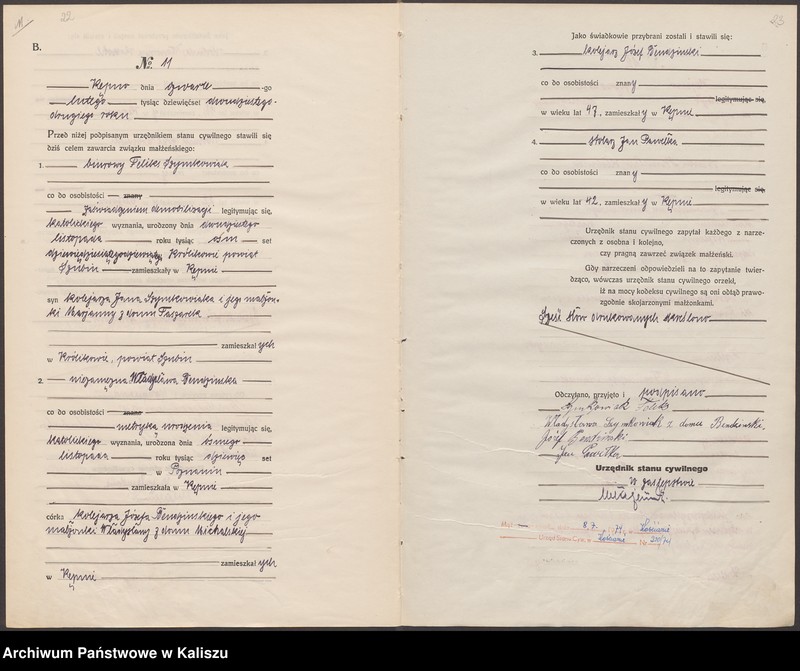 11
22
B.
№ 11
Kępno dnia czwarte -go
lutego tysiąc dziewięćset dwudziestego-
drugiego roku
Przed niżej podpisanym urzędnikiem stanu cywilnego stawili się
dziś celem zawarcia związku małżeńskiego:
1. Feliks Szymkowiak
co do osobistości znany
demobilizacji legitymując się,
katolickiego wyznania, urodzony dnia dwudziestego
listopada roku tysiąc ośm set
dziewięćdziesiątego Królikowie powiat
Szubin zamieszkały w Kępnie
syn kolejarza Jana Szymkowiaka i jego małżon-
ki Marjanny z domu
zamieszkał ych
w Królikowie, powiat Szubin
2. niezamężna Władysława Bendzinska
co do osobistości znana
metryką urodzenia legitymując się,
katolickiego wyznania, urodzona dnia ósmego
listopada roku tysiąc dziewięć set
w Poznaniu
zamieszkała w Kępnie
córka kolejarza Józefa Bendzinskiego i jego
małżonki Władysławy z domu Michalskiej
zamieszkał ych
w Kępnie
23
Jako świadkowie przybrani zostali i stawili się:
3. kolejarz Józef Bendzinski
co do osobistości znany
legitymując się,
w wieku lat 47, zamieszkał y w Kępnie
4. stolarz Jan Pawełka
co do osobistości znany
legitymując się,
w wieku lat 42, zamieszkał y w Kępnie
Urzędnik stanu cywilnego zapytał każdego z narze-
czonych z osobna i kolejno,
czy pragną zawrzeć związek małżeński.
Gdy narzeczeni odpowiedzieli na to zapytanie twier-
dząco, wówczas urzędnik stanu cywilnego orzekł,
iż na mocy kodeksu cywilnego są oni odtąd prawo-
zgodnie skojarzonymi małżonkami.
Sześć słów drukowanych skreślono
Odczytano, przyjęto i podpisano
Szymkowiak Feliks
Władysława Szymkowiak z domu Bendzinski.
Józef Bendzinski
Jan Pawełka
Urzędnik stanu cywilnego
w zastępstwie
8.7. 74 Kościanie
Urząd Stanu Cyw. w Kościanie Nr
Archiwum Państwowe w Kaliszu